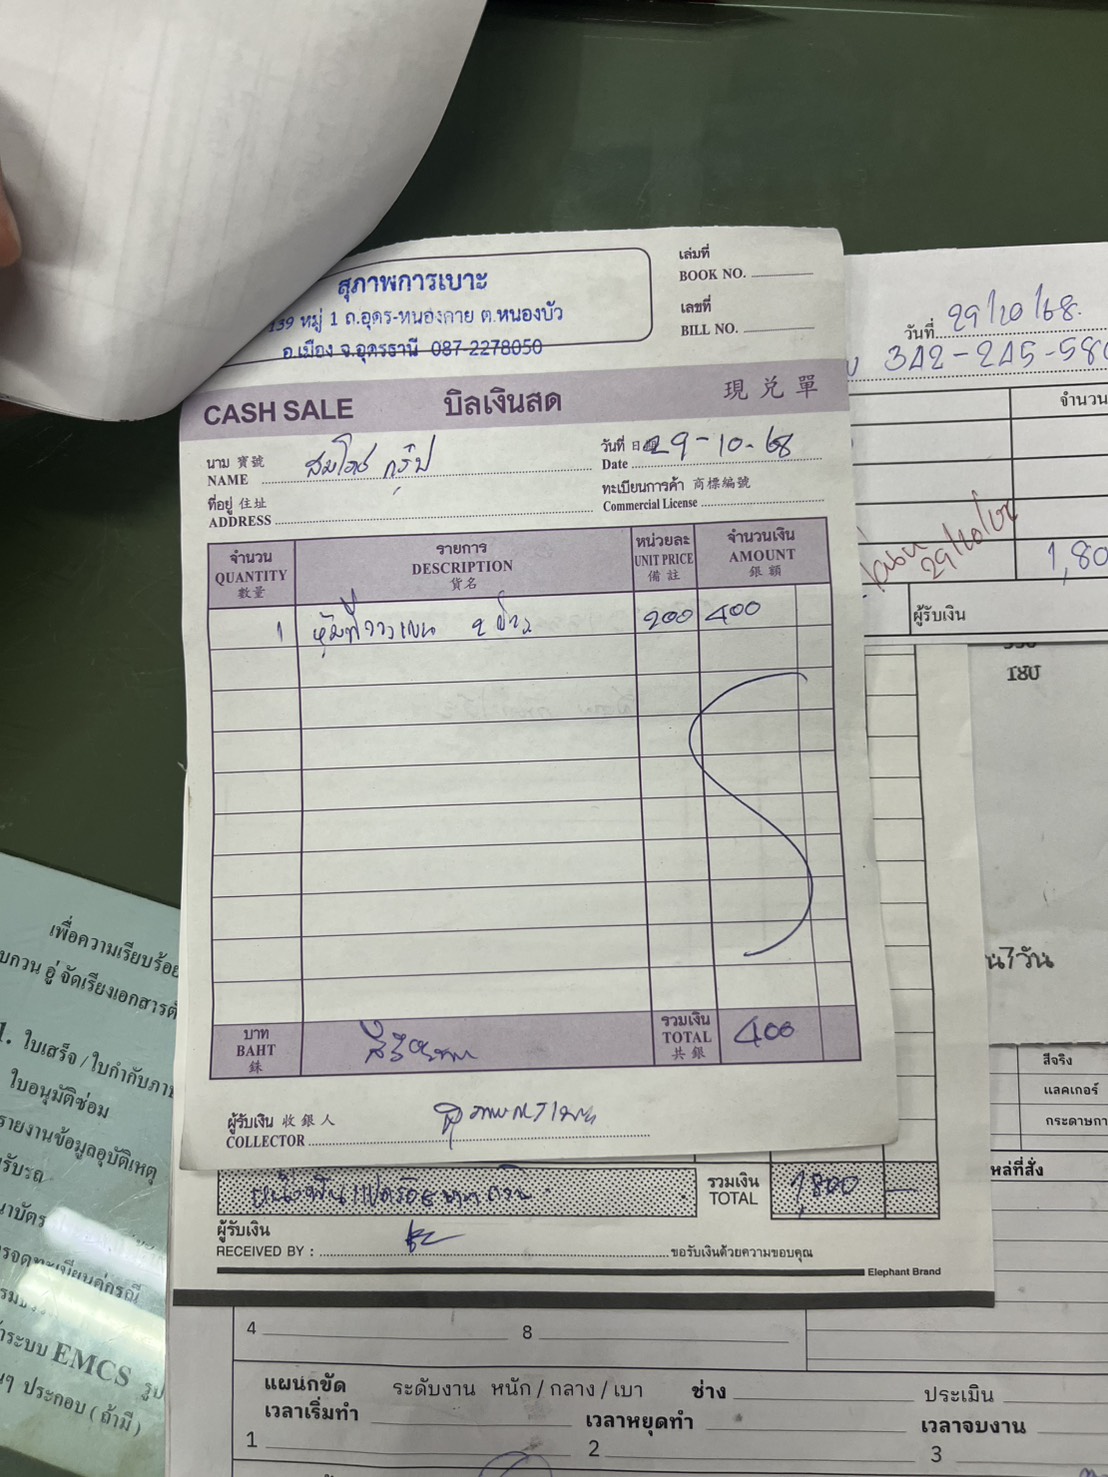 สุภาพการเบาะ
139 หมู่ 1 ถ.อุดร-หนองคาย ต.หนองบัว
อ.เมือง จ.อุดรธานี 087-2278050
เล่มที่
BOOK NO.
เลขที่
BILL NO.
CASH SALE บิลเงินสด 現兑單
นาม 寳號
NAME
วันที่ 日期 29-10-68
Date
ที่อยู่ 住址
ADDRESS
ทะเบียนการค้า 商標編號
Commercial License
จำนวน รายการ หน่วยละ จำนวนเงิน
QUANTITY DESCRIPTION UNIT PRICE AMOUNT
數量 貨名 備註 銀額
1 2 ข้าง 200 400
บาท รวมเงิน
BAHT สี่ร้อยบาท TOTAL 400
銖 共銀
ผู้รับเงิน 收銀人
COLLECTOR
วันที่ 29/10/68.
342-245-580
จำนวน
29/10/68
1,80
ผู้รับเงิน
หนึ่งพันแปดร้อยบาทถ้วน รวมเงิน 1,800
TOTAL
ผู้รับเงิน
RECEIVED BY : ขอรับเงินด้วยความขอบคุณ
Elephant Brand
7วัน
สีจริง
แลคเกอร์
กระดาษกา
หล่ที่สั่ง
เพื่อความเรียบร้อย
บกวน อู่ จัดเรียงเอกสารดั
1. ใบเสร็จ / ใบกำกับภา
ใบอนุมัติซ่อม
รายงานข้อมูลอุบัติเหตุ
รับรถ
าระบบ EMCS รูป
นๆ ประกอบ ( ถ้ามี )
4 8
แผนกขัด ระดับงาน หนัก / กลาง / เบา ช่าง ประเมิน
เวลาเริ่มทำ เวลาหยุดทำ เวลาจบงาน
1 2 3